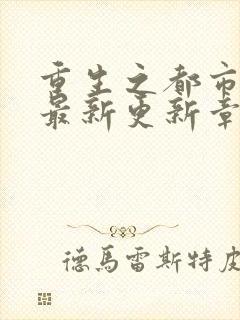 重生之都市
最新更新章
德馬雷斯特皮